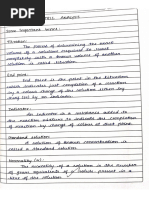 Some important terms:
Titration:
The process of determining the exact
volume of a solution required to react
completely with a known volume of another
solution is called titration.
End point:
End point is the point in the titration
which indicates just completion of a reaction
by a colour change of the solution either
by itself or by indicator.
Indicator:
An indicator is a substance added to
the reaction mixture to indicate the completion
of reaction by change of colour at that point.
Standard solution
A solution of known concentration is called
standard solution.
Normality (N)
The normality of a solution is the number
of gram equivalent of solute present in a
litre of the solution.